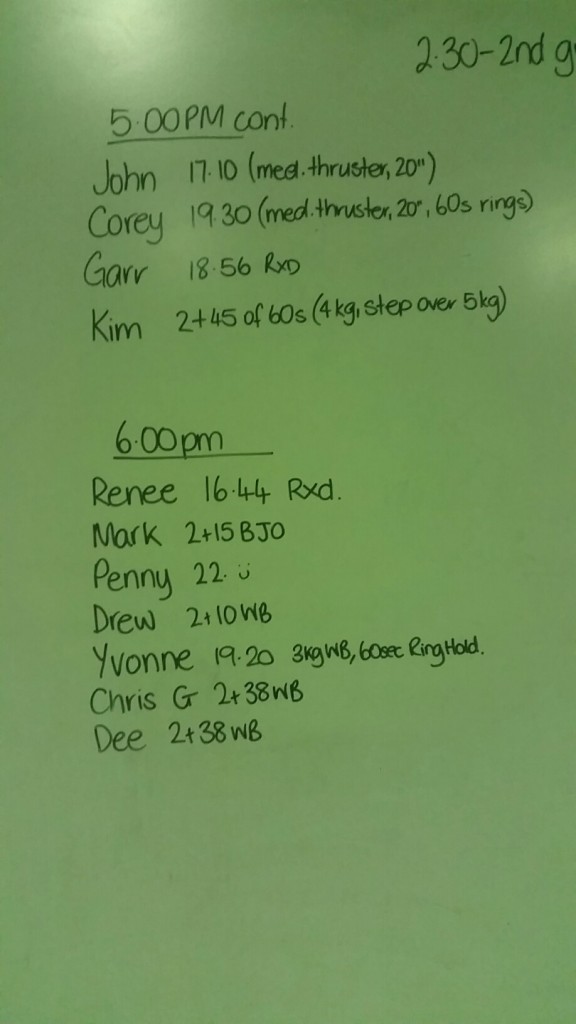 2.30-2nd g
5.00PM cont.
John 17.10 (med. thruster, 20")
Corey 19.30 (med. thruster, 20", 60s rings)
Garr 18.56 RxD
Kim 2+45 of 60s (4kg, step over 5kg)
6.00pm
Renee 16.44 Rxd.
Mark 2+15 BJO
Penny 22. ü
Drew 2+10 WB
Yvonne 19.20 3kg WB, 60sec Ring Hold.
Chris G 2+38 WB
Dee 2+38 WB